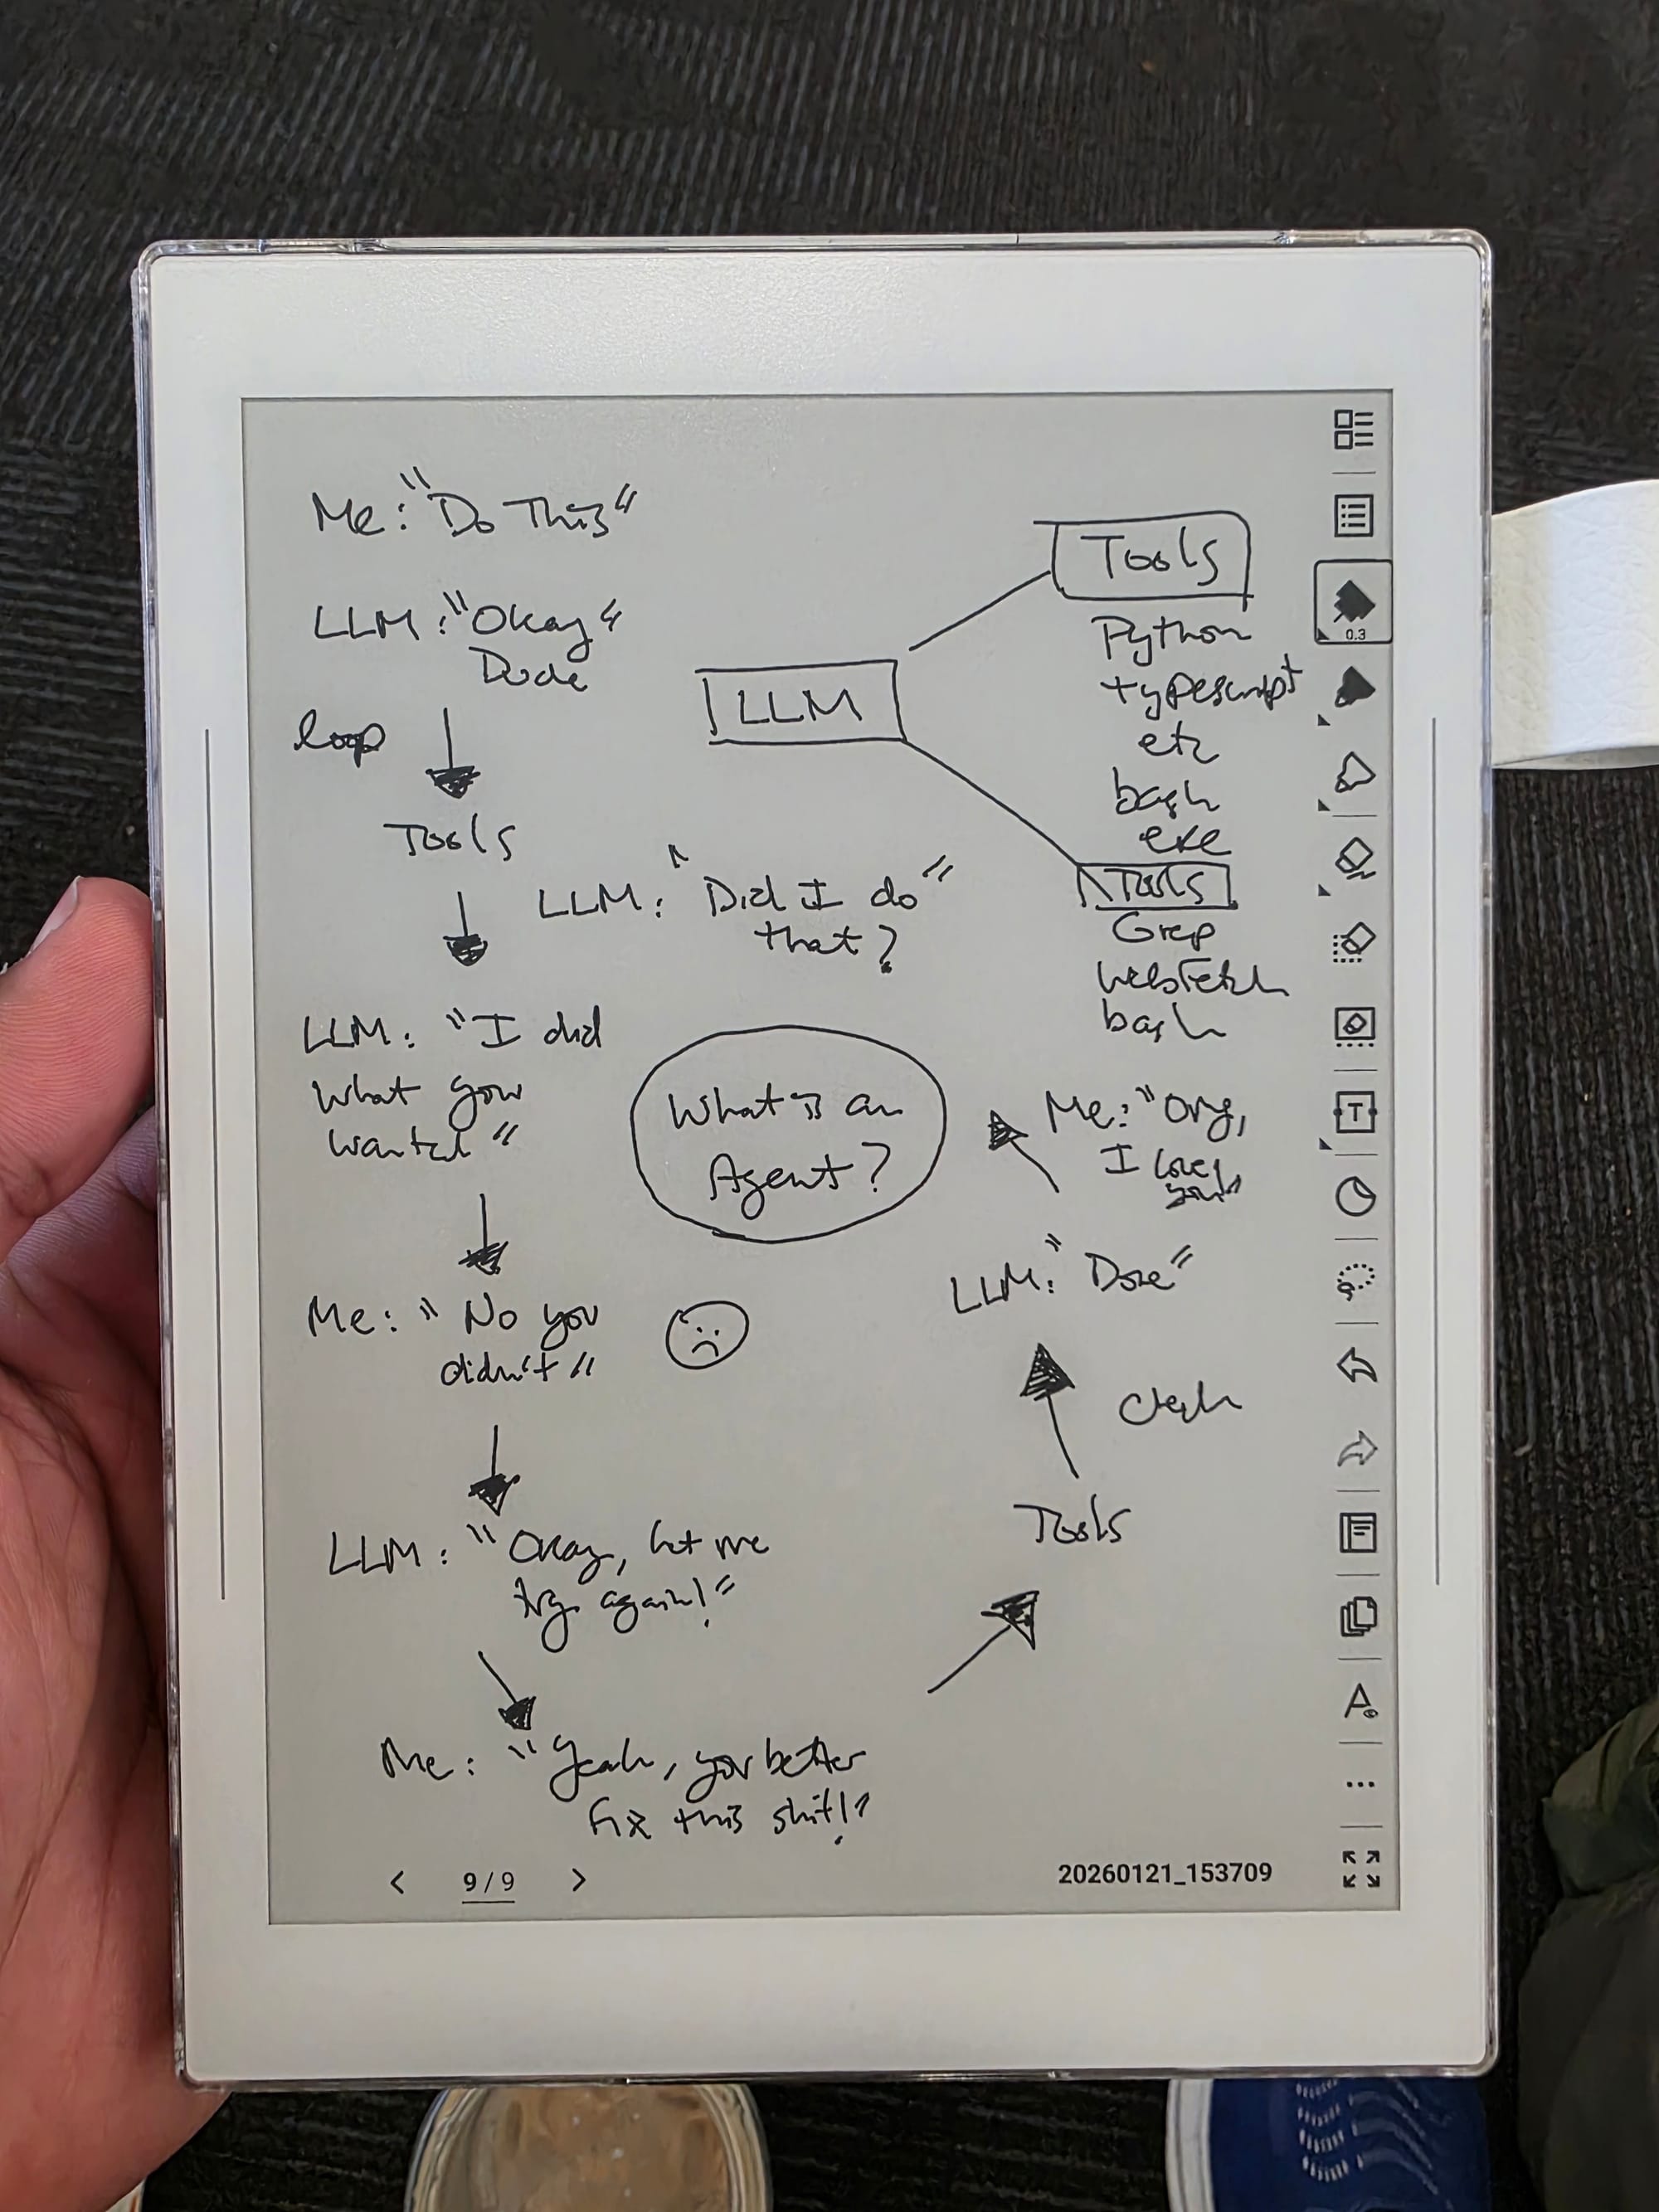 Me: "Do This"
LLM: "Okay"
Dude
loop
Tools
LLM: "Did I do"
that?
LLM: "I did
what you
wanted"
Me: "No you
didn't"
LLM: "Okay, let me
try again!"
Me: "Yeah, you better
fix this shit!"
Tools
LLM: "Done"
Me: "Omg,
I love
you"
What is an
Agent?
LLM
Tools
Python
typescript
etc
bash
exe
Tools
Grep
webfetch
bash
0.3
T
A
< 9 / 9 >
20260121_153709